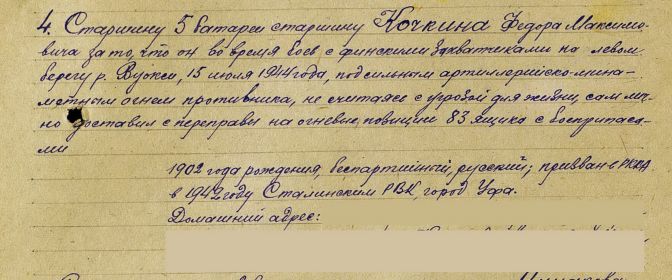 4. Старшину 5 батареи старшину Кочкина Федора Максимо-
вича за то, что он во время боев с финскими захватчиками на левом
берегу р. Вуокси, 15 июля 1944 года, под сильным артиллерийско-мина-
метным огнем противника, не считаясь с угрозой для жизни, сам лич-
но доставил с переправы на огневые позиции 83 ящика с боеприпаса-
ми
1902 года рождения, беспартийный, русский; призван в РККА
в 1942 году Сталинским РВК, город Уфа.
Домашний адрес: